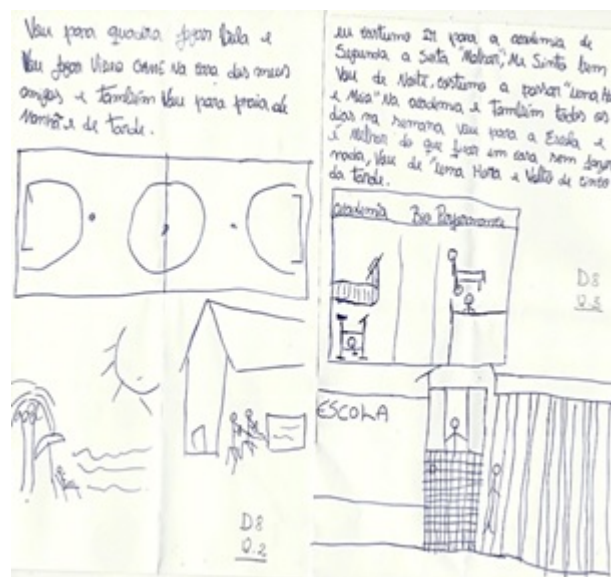 Vou para quadra jogar bola e
Vou jogar Video Game na casa dos meus
amigos e Também Vou para praia de
Manhã e de Tarde.
D8
Q.2
eu costumo Ir para a academia de
Segunda a Sexta "Malhar", Me Sinto bem
Vou de Noite, costumo a passar "uma Ho
e Meia" Na academia e Também todos os
dias na semana Vou para a Escola e
é Melhor do que ficar em casa sem fazer
nada, Vou de "uma Hora e Volto de cinco
da tarde.
academia Bio
D8
Q.3
ESCOLA